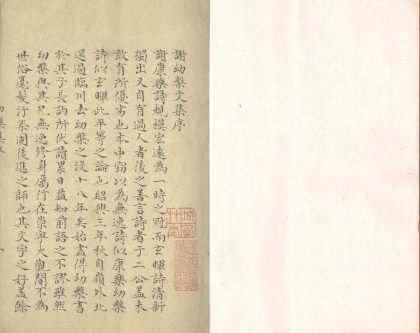 謝幼槃文集序
謝康樂詩規模宏遠為一時之冠而玄暉詩清新
獨出又自有過人者後之善言詩者于二公蓋未
敢有所優劣也本中竊以為無逸詩似康樂幼槃
詩似玄暉此平等之論也紹興三年秋自嶺外北
還過臨川去幼槃之沒十八年矣始盡得幼槃書
於其子長訥所伏讀累日益知前語之不謬雖然
幼槃與其兄無逸修身厲行在崇寧大觀間不為
世俗毫髮污染固後進之師也其文字之好蓋餘